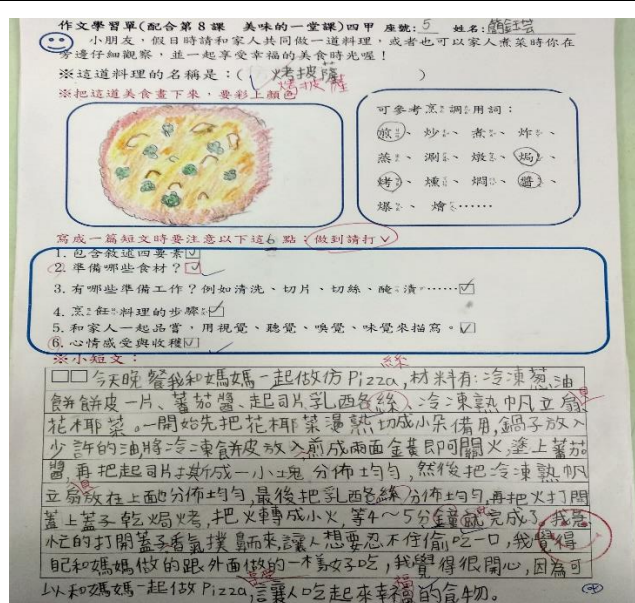 作文學習單(配合第8課 美味的一堂課)四甲 座號:5 姓名:
小朋友，假日時請和家人共同做一道料理，或者也可以家人煮菜時你在
旁邊仔細觀察，並一起享受幸福的美食時光喔！
※這道料理的名稱是：( 烤披薩 )
烤披薩
※把這道美食畫下來，要彩上顏色
可參考烹調用詞：
煎、炒、煮、炸、
蒸、涮、燉、焗、
烤、燻、燜、醬、
爆、燴……
寫成一篇短文時要注意以下這6點：做到請打ˇ
1. 包含敘述四要素
2. 準備哪些食材？
3. 有哪些準備工作？例如清洗、切片、切絲、醃漬……
4. 烹飪料理的步驟
5. 和家人一起品嘗，用視覺、聽覺、嗅覺、味覺來描寫。
6. 心情感受與收穫
※小短文：
絲
今天晚餐我和媽媽一起做仿Pizza,材料有:冷凍蔥油
餅餅皮一片、蕃茄醬、起司片乳酪絲、冷凍熟帆立扇
花椰菜。一開始先把花椰菜燙熟切成小朵備用,鍋子放入
少許的油將冷凍餅皮放入煎成兩面金黃即可關火,塗上蕃茄
醬,再把起司片撕成一小塊分佈均勻,然後把冷凍熟帆
立扇放在上面分佈均勻,最後把乳酪絲分佈均勻,再把火打開
蓋上蓋子乾焗烤,把火轉成小火,等4～5分鐘就完成了,我急
忙的打開蓋子香氣撲鼻而來,讓人想要忍不住偷吃一口,我覺得
自己和媽媽做的跟外面做的一樣好吃,我覺得很開心,因為可
以和媽媽一起做Pizza,讓人吃起來幸福的食物。